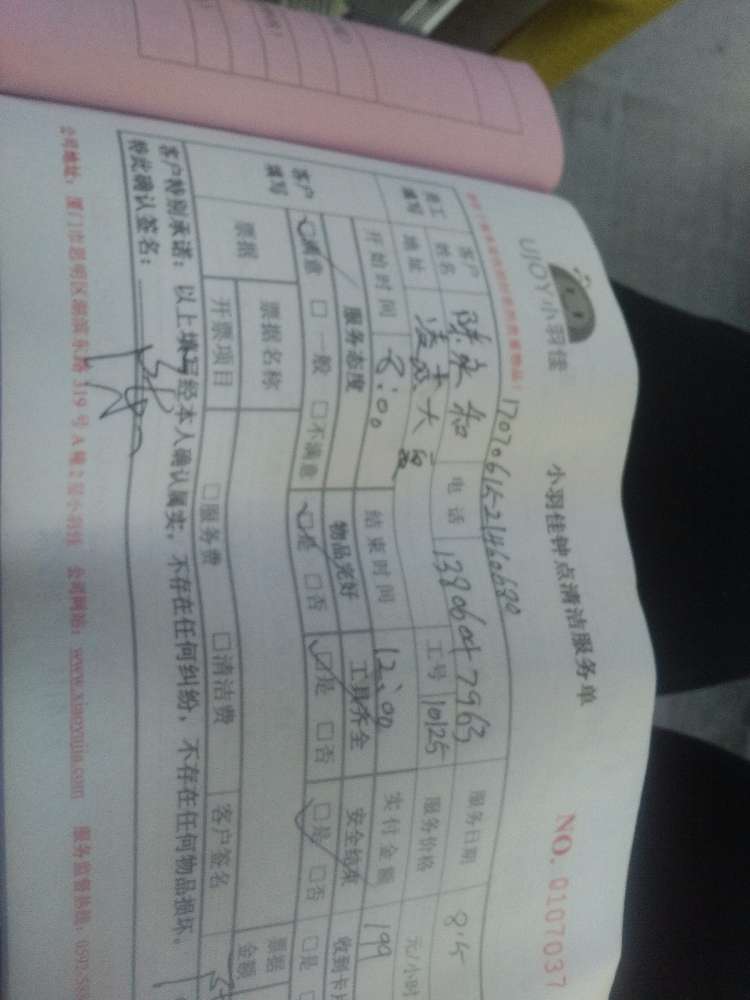 UJOY小羽佳
小羽佳钟点清洁服务单
NO. 0107037
客户姓名 电话 13806047963 服务日期 8.5
员工填写 地址 工号 10125 服务价格 元/小时
开始时间 8:00 结束时间 12:00 实付金额 199
客户填写 服务态度 物品完好 工具齐全 安全结束 收到卡
☑满意 □一般 □不满意 ☑是 □否 ☑是 □否 ☑是 □否 □是
票据 票据名称 票据金额
开票项目 □服务费 □清洁费 客户签名
客户特别承诺：以上填写经本人确认属实，不存在任何纠纷，不存在任何物品损坏。
特此确认签名：
公司地址：厦门市思明区湖滨东路319号A幢2层小羽佳 公司网站：www.xiaoyujia.com 服务监督热线：0592-